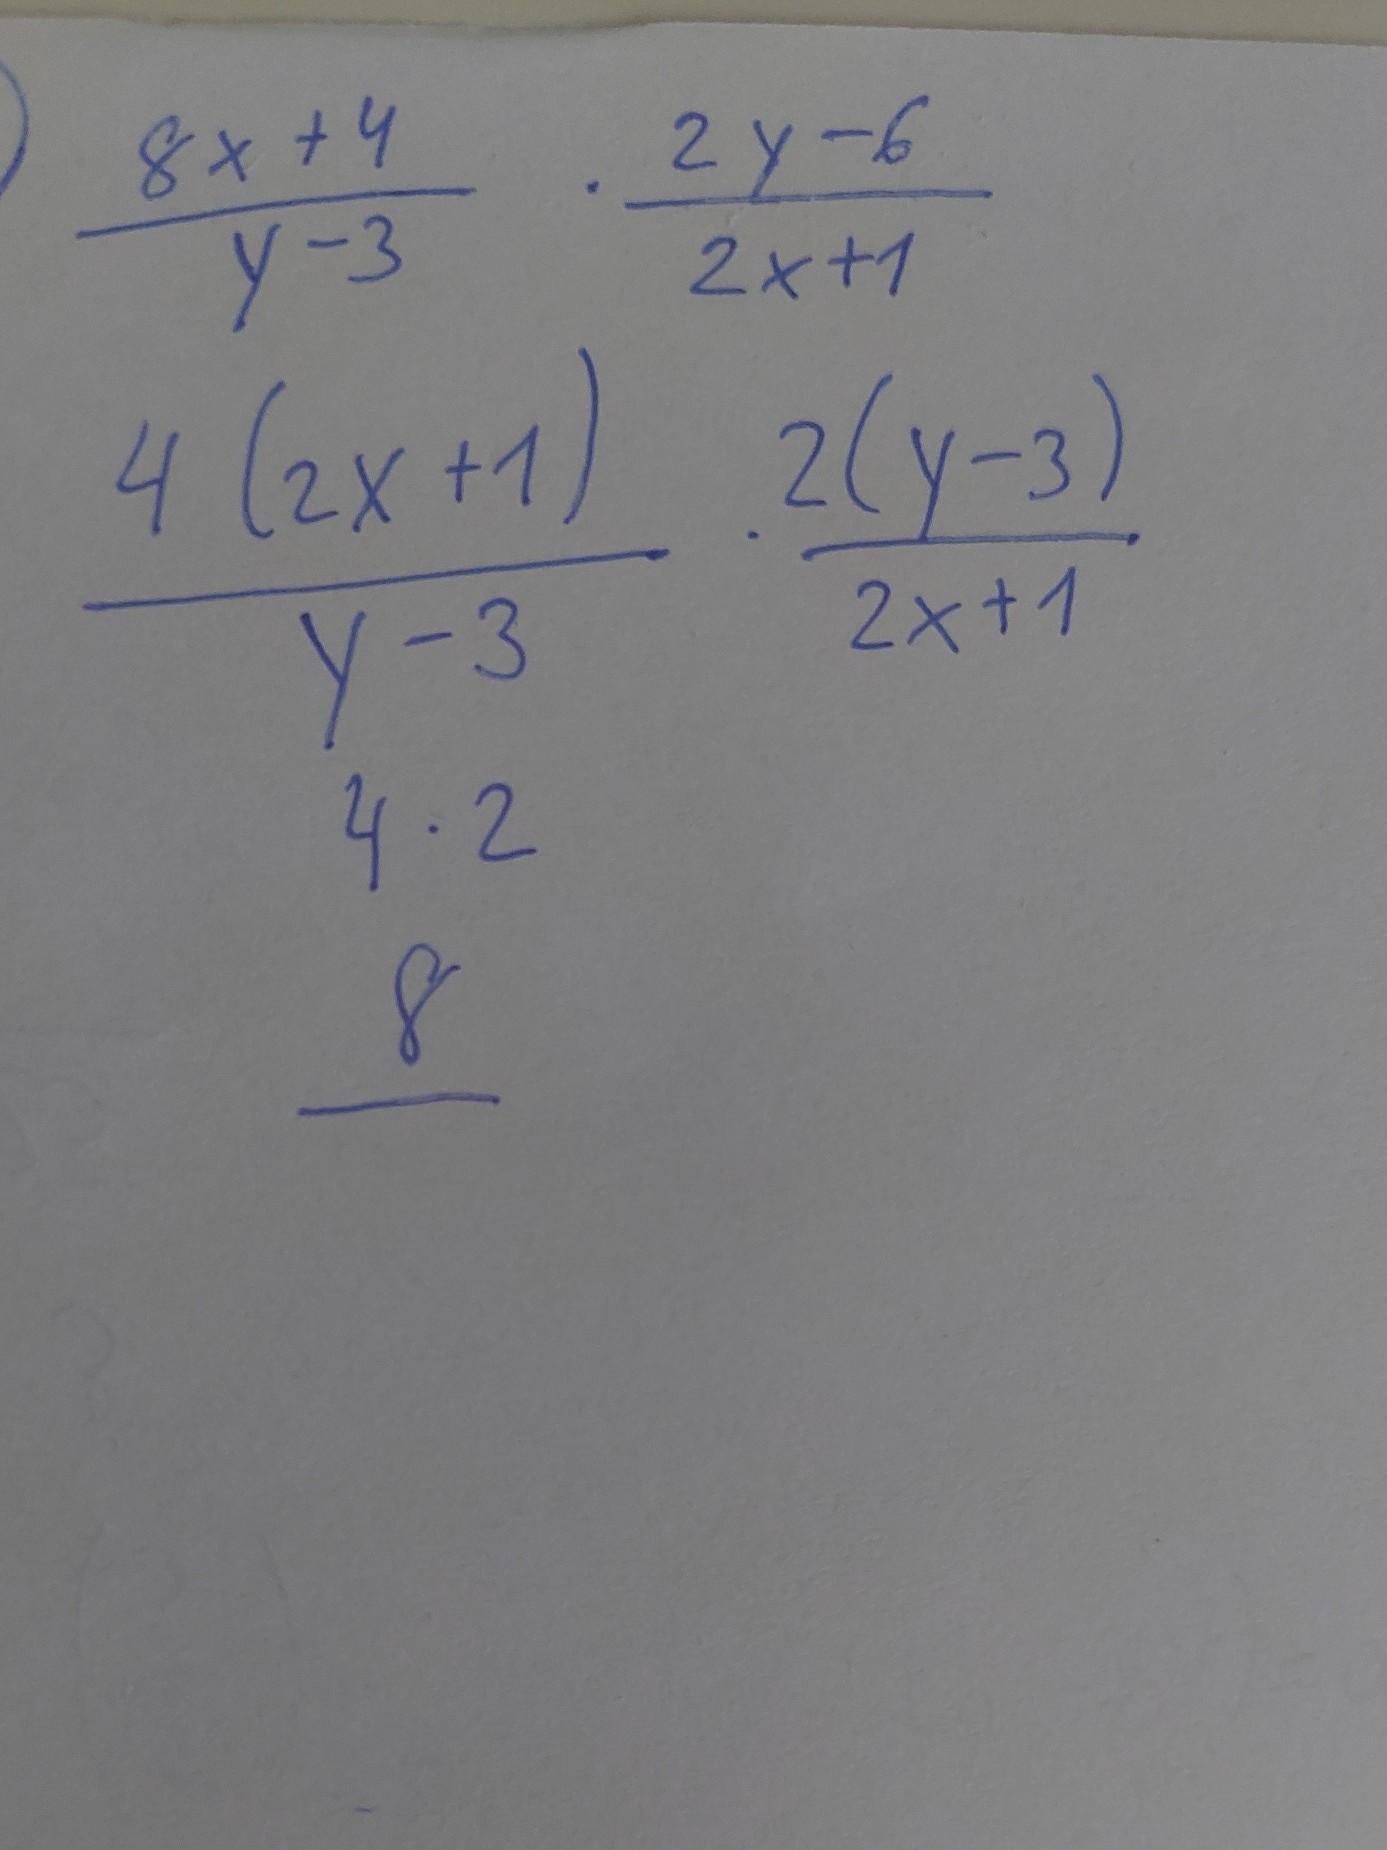 ) 8x+4 / y-3 · 2y-6 / 2x+1
4(2x+1) / y-3 · 2(y-3) / 2x+1
4·2
8